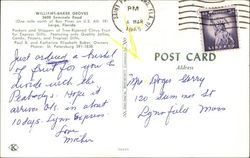 WILLIAMS-BAKER GROVES
2600 Seminole Road
(One mile north of Bay Pines on U.S. Alt. 19)
Largo, Florida
Packers and Shippers of Tree-Ripened Citrus Fruit
for Express Gifts. Featuring only Quality Jellies,
Candy, Pecans, and Tropical Gifts.
Paul B. and Katherine Elizabeth Baker, Owners
Phone: St. Petersburg
Just ordered a bushel
of fruit for you to
divide with the
Peabodys. Hope it
arrives ok. in about
10 days. Lynn Express.
Love
Mother
POST CARD
Address
Mrs Roger Gerry
120 Summer St
Lynnfield Mass
PM
LIBERTY
K